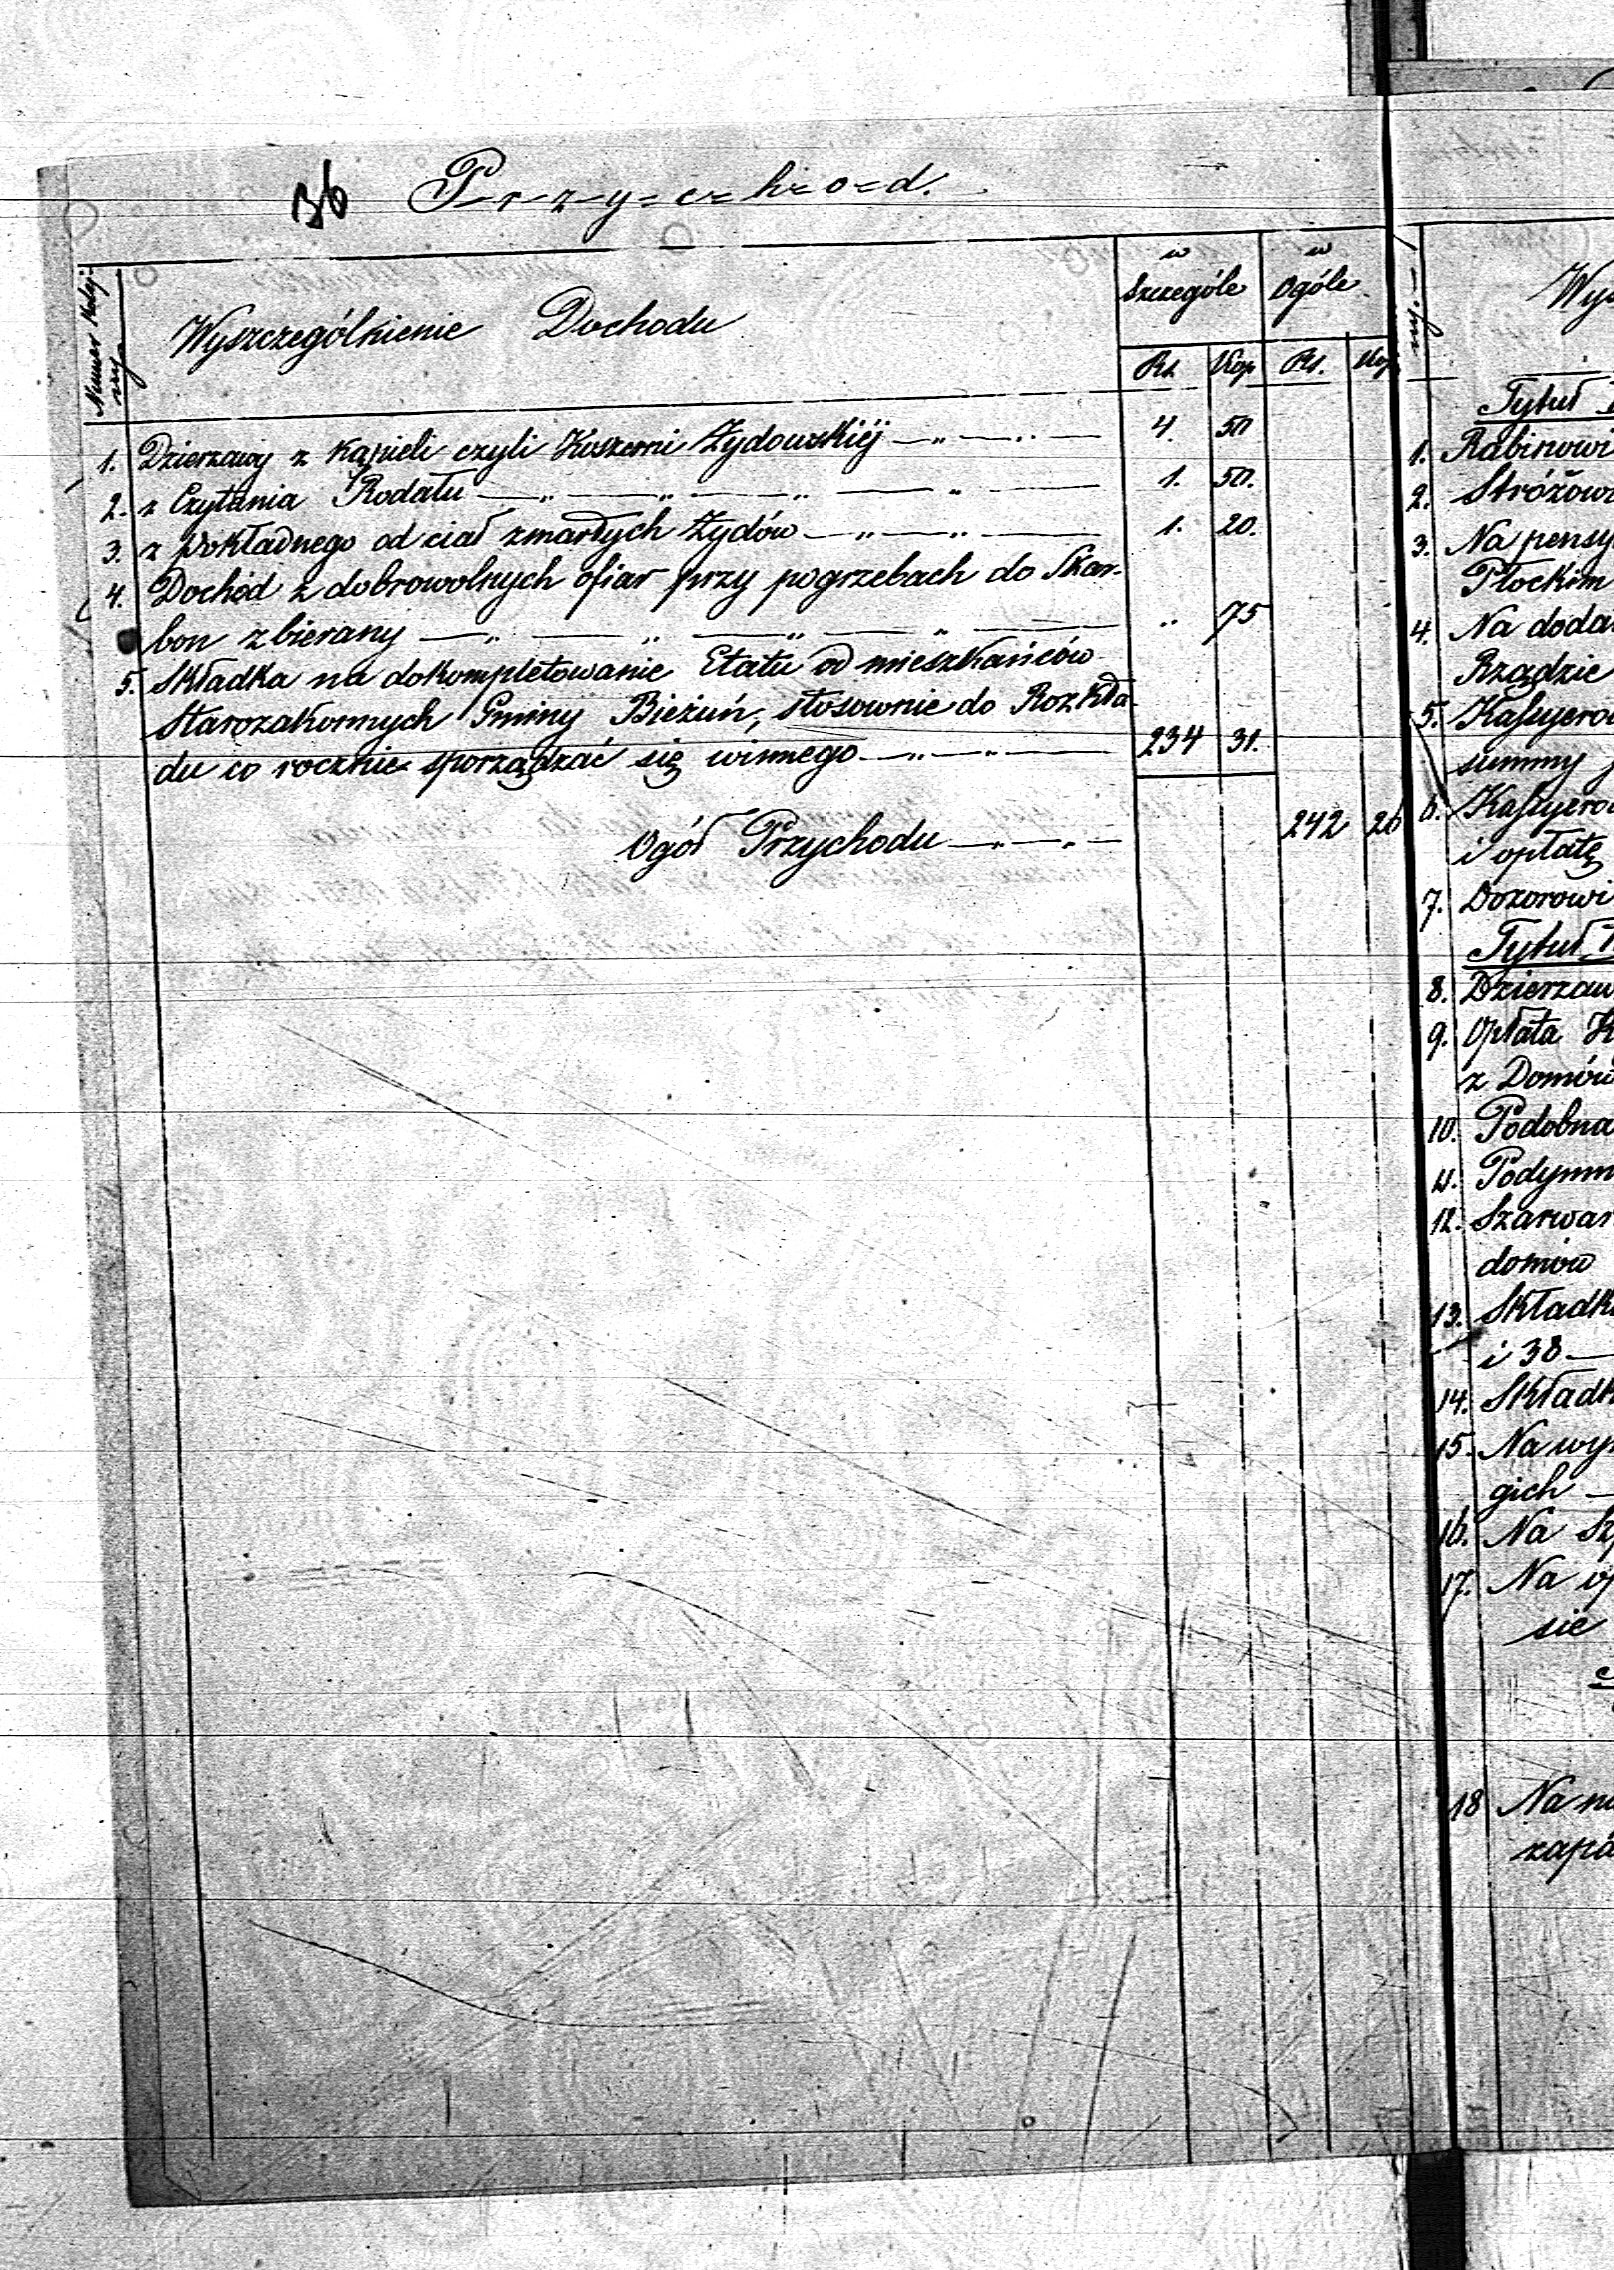 36 P-r-z-y-c-h-o-d.
Numer Kolej-
ny
Wyszczególnienie Dochodu
w
Szczególe
w
Ogóle
Rs. Kop Rs. Kop
1. Dzierzawy z kąpieli czyli Koszerni Żydowskiéj 4. 50
2. z Czytania Rodału 1. 50.
3. z pokładnego od ciał zmarłych Żydów 1. 20.
4. Dochód z dobrowolnych ofiar przy pogrzebach do Skar-
bon zbierany " 75
5. Składka na dokompletowanie Etatu od mieszkańców
Starozakonnych Gminy Bieżuń, stosownie do Rozkła-
du co rocznie sporządzać się winnego 234 31.
Ogół Przychodu 242 26
ny.
Tytuł
1. Rabinowi
2.
3. Na pensy
Płockim
4. Na doda
Rządzie
5.
summy
6.
i opłatę
7. Dozorowi
Tytuł
8. Dzierzaw
9. Opłata K
z Domów
10. Podobna
11. Podymn
12. Szarwar
domów
13. Składk
i 38
14. Składk
15. Na wy
gich
16. Na Sz
17. Na op
sie
18 Na